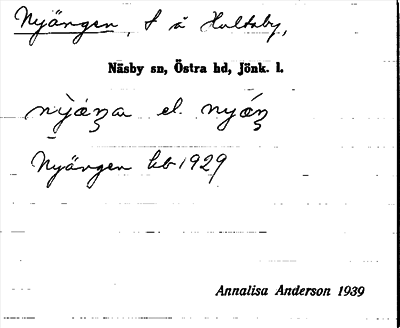 Nyängen, t å Hultsby,
Näsby sn, Östra hd, Jönk. l.
el.
Nyängen kb 1929
Annalisa Anderson 1939